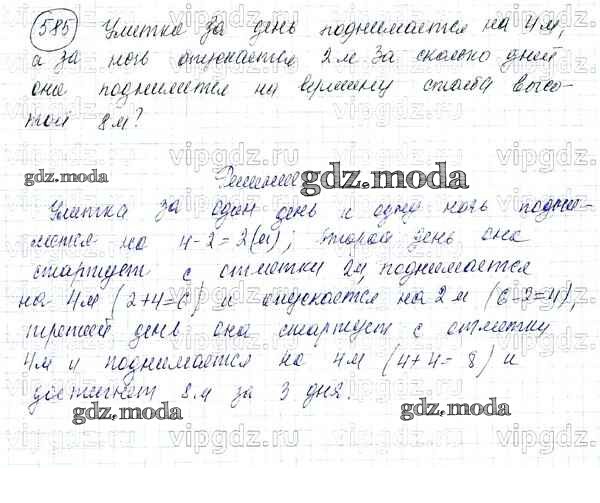 585 Улитка за день поднимается на 4м,
а за ночь опускается 2м. За сколько дней
она поднимется на вершину столба высо-
той 8м?
Решение
Улитка за один день и одну ночь подни-
мется на 4-2=2(м); второй день она
стартует с отметки 2м, поднимается
на 4м (2+4=6) и опускается на 2м (6-2=4),
третий день она стартует с отметки
4м и поднимается на 4м (4+4=8) и
достигнет 8м за 3 дня.
gdz.moda
gdz.moda
gdz.moda
gdz.moda
vipgdz.ru
vipgdz.ru
vipgdz.ru
vipgdz.ru
vipgdz.ru
vipgdz.ru